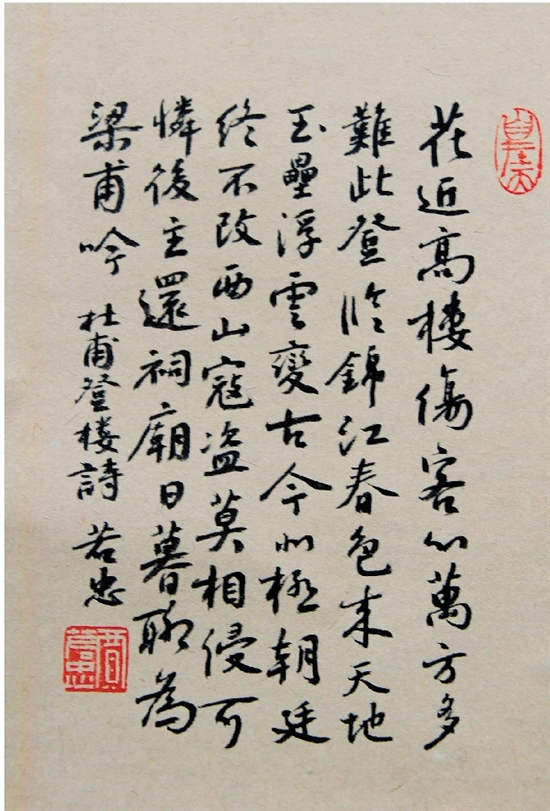 花近高樓傷客心萬方多
難此登临錦江春色来天地
玉壘浮雲變古今北極朝廷
終不改西山寇盗莫相侵可
憐後主還祠廟日暮聊為
梁甫吟
杜甫登楼詩 若忠